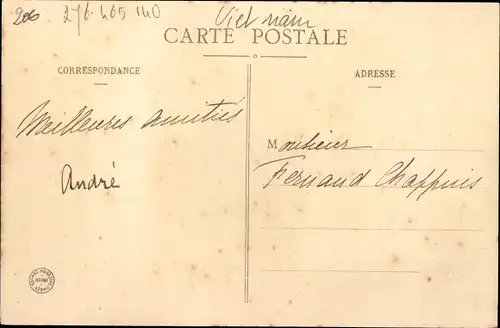 206
276.465 140
Viet nam
CARTE POSTALE
CORRESPONDANCE
ADRESSE
Meilleures amitiés
André
Monsieur
Fernand Chappuis